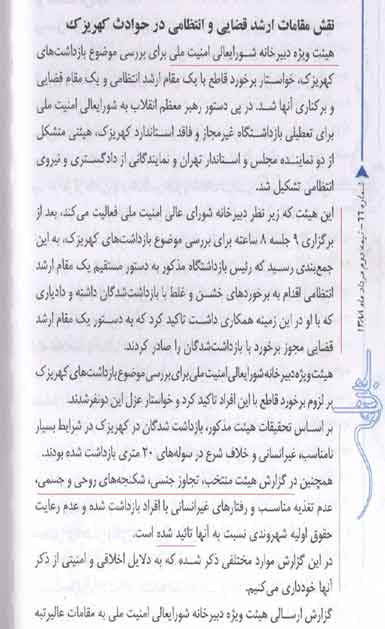 نقش مقامات ارشد قضایی و انتظامی در حوادث کهریزک
هیئت ویژه دبیرخانه شورایعالی امنیت ملی برای بررسی موضوع بازداشت‌های
کهریزک، خواستار برخورد قاطع با یک مقام ارشد انتظامی و یک مقام قضایی
و برکناری آنها شد. در پی دستور رهبر معظم انقلاب به شورایعالی امنیت ملی
برای تعطیلی بازداشتگاه غیرمجاز و فاقد استاندارد کهریزک، هیئتی متشکل
از دو نماینده مجلس و استاندار تهران و نمایندگانی از دادگستری و نیروی
انتظامی تشکیل شد.
این هیئت که زیر نظر دبیرخانه شورای عالی امنیت ملی فعالیت می‌کند، بعد از
برگزاری ۹ جلسه ۸ ساعته برای بررسی موضوع بازداشت‌های کهریزک، به این
جمع‌بندی رسید که رئیس بازداشتگاه مذکور به دستور مستقیم یک مقام ارشد
انتظامی اقدام به برخوردهای خشن و غلط با بازداشت‌شدگان داشته و دادیاری
که با او در این زمینه همکاری داشت تاکید کرد که به دستور یک مقام ارشد
قضایی مجوز برخورد با بازداشت‌شدگان را صادر کردند.
هیئت ویژه دبیرخانه شورایعالی امنیت ملی برای بررسی موضوع بازداشت‌های کهریزک
بر لزوم برخورد قاطع با این افراد تاکید کرد و خواستار عزل این دونفرشدند.
بر اساس تحقیقات هیئت مذکور، بازداشت شدگان در کهریزک در شرایط بسیار
نامناسب، غیرانسانی و خلاف شرع در سوله‌های ۲۰ متری بازداشت شده بودند.
همچنین در گزارش هیئت منتخب، تجاوز جنسی، شکنجه‌های روحی و جسمی،
عدم تغذیه مناسب و رفتارهای غیرانسانی با افراد بازداشت شده و عدم رعایت
حقوق اولیه شهروندی نسبت به آنها تائید شده است.
در این گزارش موارد مختلفی ذکر شده که به دلایل اخلاقی و امنیتی از ذکر
آنها خودداری می‌کنیم.
گزارش ارسالی هیئت ویژه دبیرخانه شورایعالی امنیت ملی به مقامات عالیرتبه
شماره ۶۶ - نیمه دوم مرداد ماه ۱۳۸۸